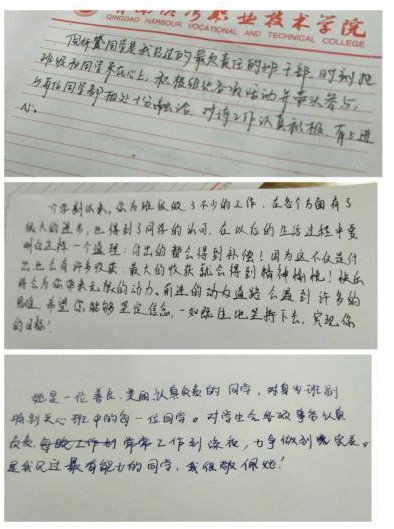 青岛港湾职业技术学院
QINGDAO HARBOUR VOCATIONAL AND TECHNICAL COLLEGE
同学是我见过的最负责任的班干部,时刻把
班级和同学系在心上。积极组织各项活动并带头参与,
与每位同学都相处十分融洽。对待工作认真积极,有上进
心。
个学期以来,你为班级做了不少的工作,在各个方面有了
很大的进步,也得到了同学的认可,在以后的生活过程中要
明白这样一个道理:付出的都会得到补偿!因为这不仅是付
出也会有许多收获,最大的收获就会得到精神愉悦!快乐
将会为你带来无限的动力。前进的动力道路会遇到许多的
困难,希望你能够坚定信念,一如既往地坚持下去,实现你
的目标!
她是一位善良、美丽认真负责的同学,对自身班级
特别关心班中的每一位同学。对学生会各项事务认真
负责,常常工作到深夜,力争做到完善。
是我见过最有能力的同学,我很敬佩她!